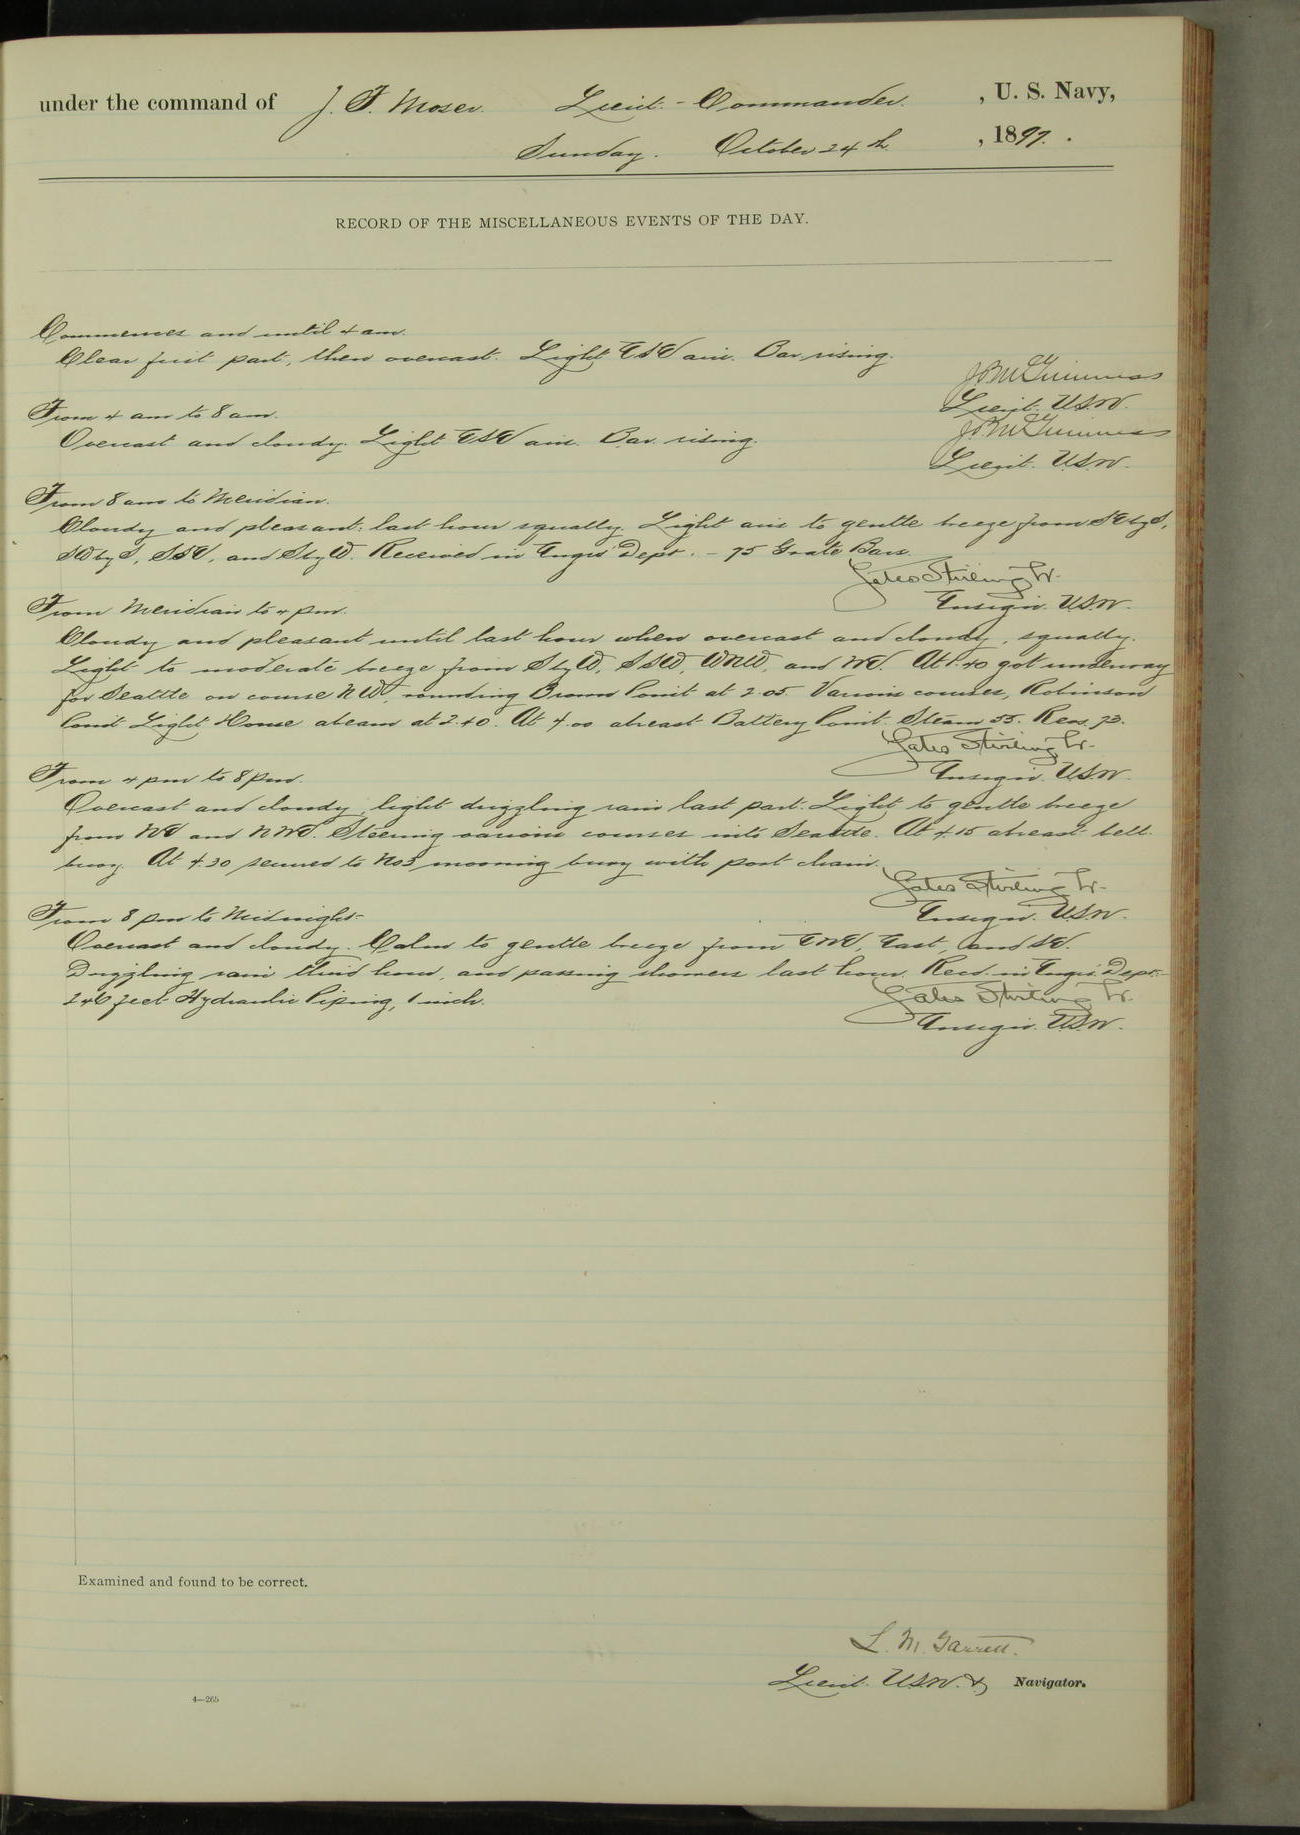 under the command of J. F. Moser. Lieut.-Commander. , U. S. Navy,
Sunday. October 24th , 1897.
RECORD OF THE MISCELLANEOUS EVENTS OF THE DAY.
Commences and until 4 am.
Clear first part, then overcast. Light ESE airs. Bar rising.
Lieut. U.S.N.
From 4 am to 8 am.
Overcast and cloudy. Light ESE airs. Bar. rising.
Lieut. U.S.N.
From 8 am to Meridian.
Cloudy and pleasant: last hour squally. Light airs to gentle breeze from SE by S,
SW by S, SSE, and S by W. Received in Engrs Dept. - 75 Grate Bars.
Yates Stirling Jr.
Ensign. U.S.N.
From Meridian to 4 pm.
Cloudy and pleasant until last hour when overcast and cloudy, squally.
Light to moderate breeze from S by W, SSW, WNW, and NE. At 1.40 got underway
for Seattle on course NW, rounding Brown Point at 2.05. Various courses, Robinson
Point Light House abeam at 2.40. At 4.00 abreast Battery Point. Steam 55. Revs. 73.
Yates Stirling Jr.
Ensign. U.S.N.
From 4 pm to 8 pm.
Overcast and cloudy, light drizzling rain last part. Light to gentle breeze
from NE and NNE. Steering various courses into Seattle. At 4.15 abreast bell
buoy. At 4.30 secured to No 3 mooring buoy with port chain.
Yates Stirling Jr.
Ensign. U.S.N.
From 8 pm to Midnight-
Overcast and cloudy. Calm to gentle breeze from ENE, East, and SE.
Drizzling rain third hour, and passing showers last hour. Recd. in Engrs. Dept:-
246 feet Hydraulic Piping, 1 inch.
Yates Stirling Jr.
Ensign. U.S.N.
Examined and found to be correct.
L. M. Garrett.
Lieut. U.S.N. & Navigator.
4—265